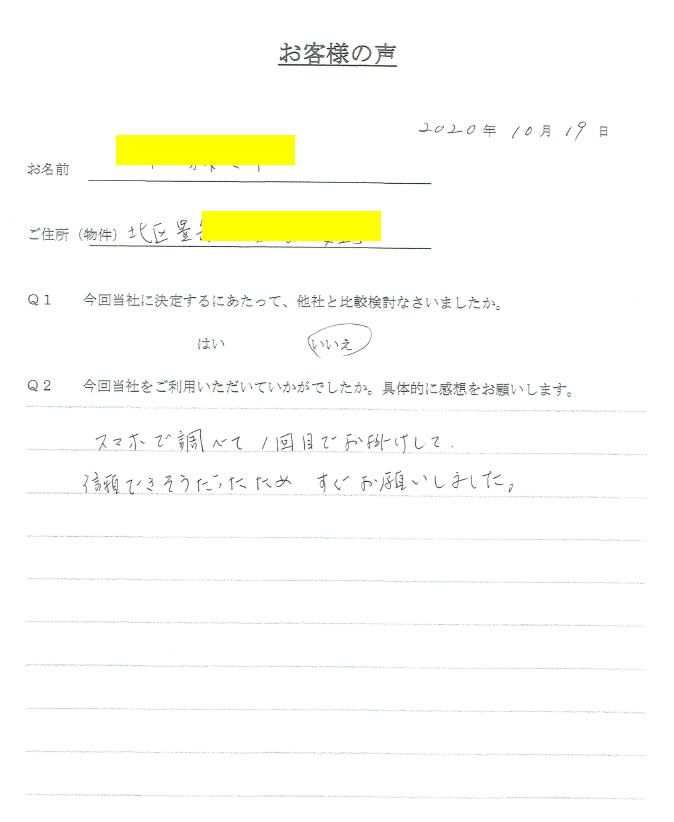 お客様の声
2020年 10月 19日
お名前
ご住所（物件） 北区豊
Q1 今回当社に決定するにあたって、他社と比較検討なさいましたか。
はい いいえ
Q2 今回当社をご利用いただいていかがでしたか。具体的に感想をお願いします。
スマホで調べて 1回目でお掛けして
信頼できそうだったため すぐお願いしました。